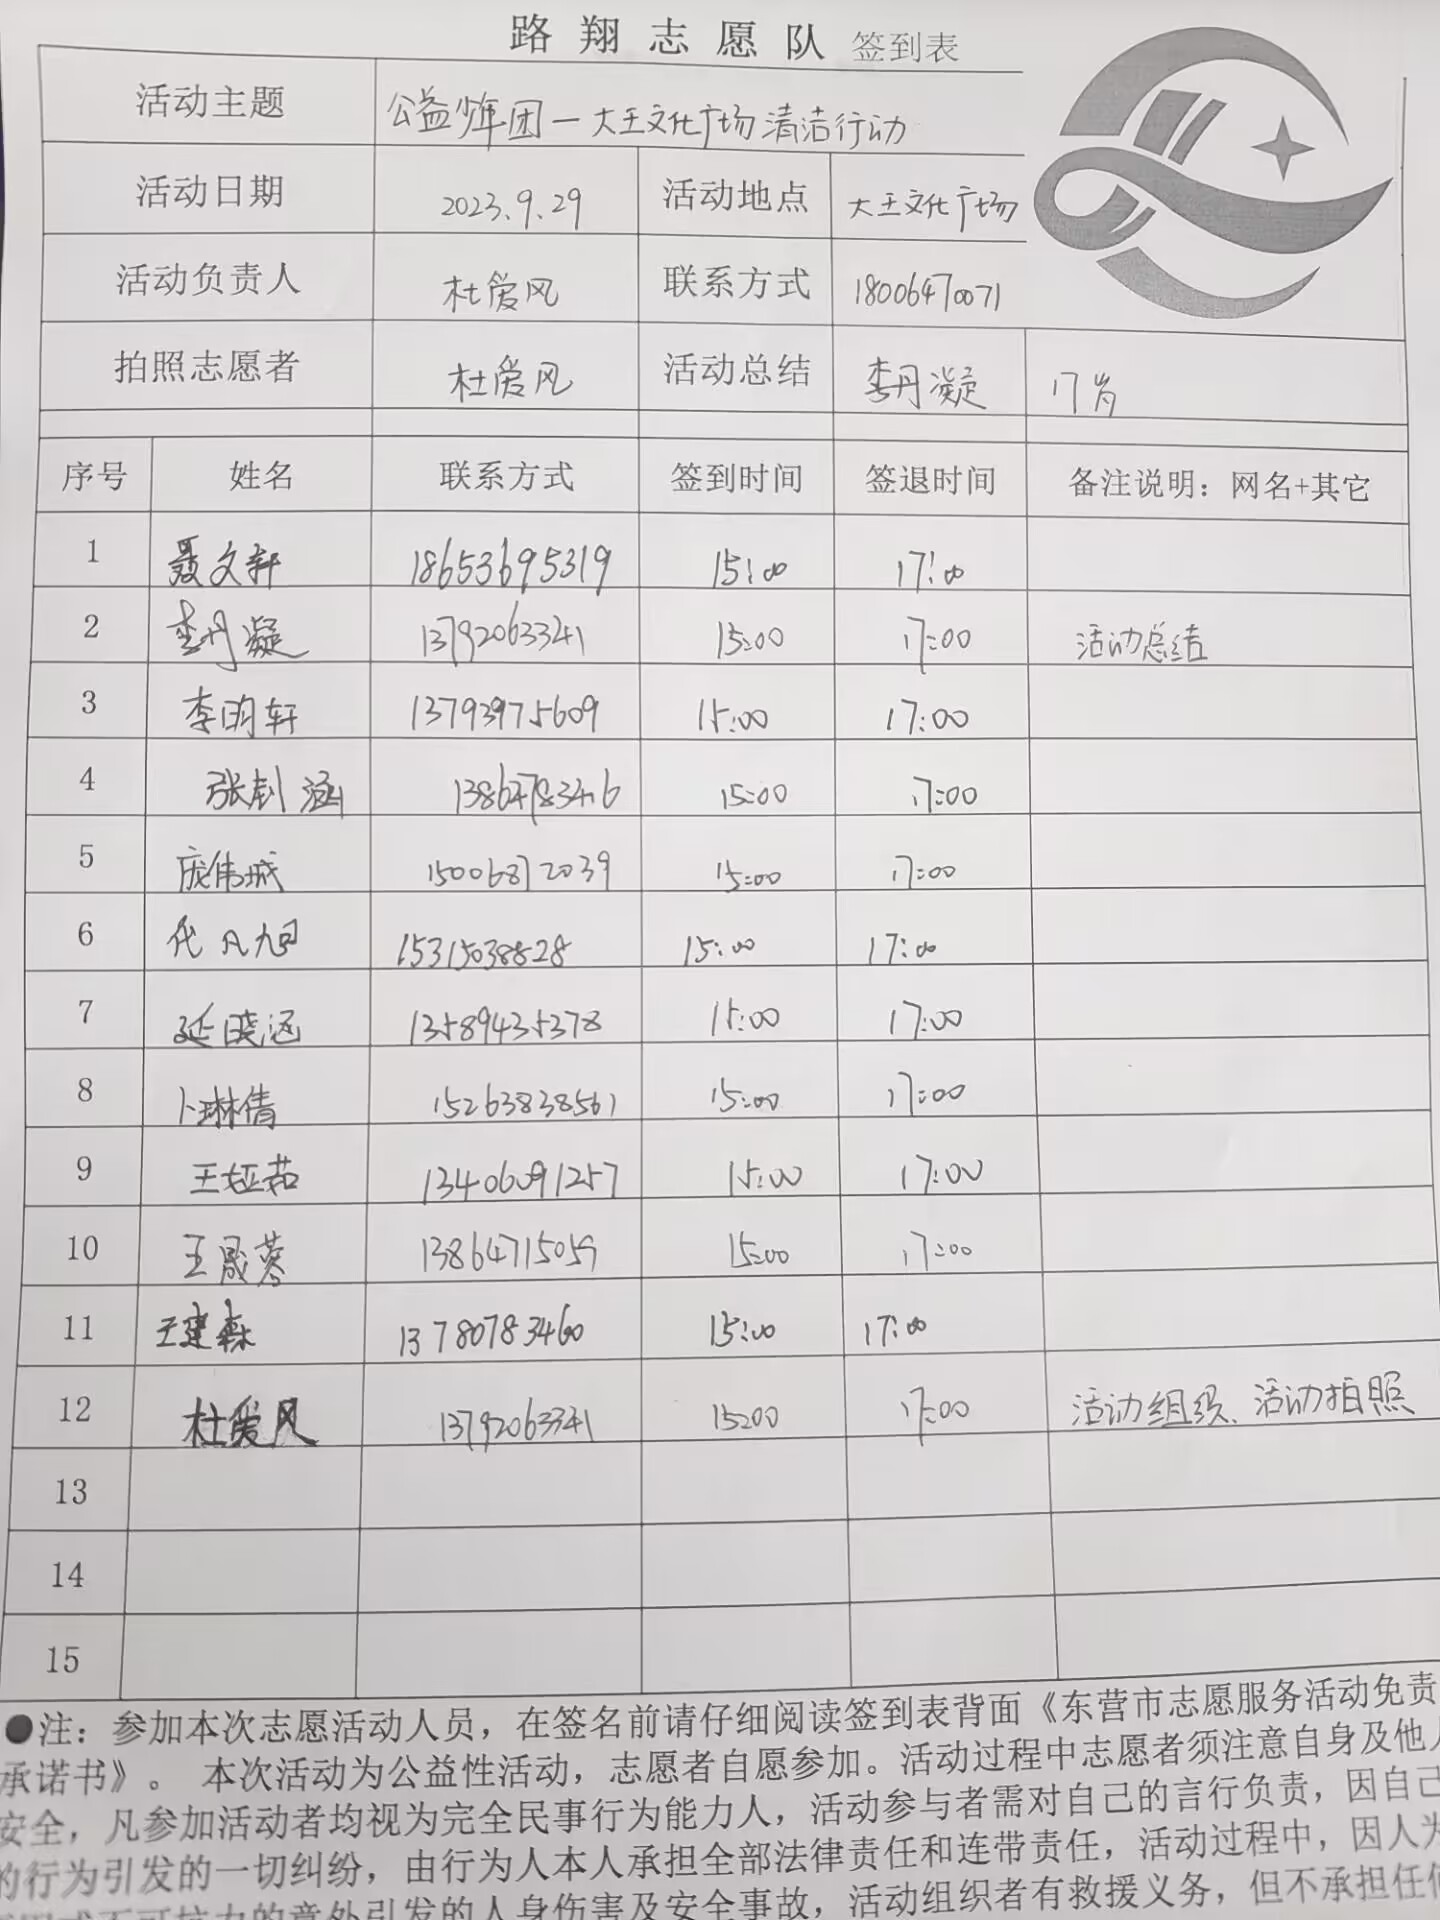 路翔志愿队 签到表
活动主题 公益少年团一大王文化广场清洁行动
活动日期 2023.9.29 活动地点 大王文化广场
活动负责人 杜爱风 联系方式 18006470071
拍照志愿者 杜爱风 活动总结 李丹凝 17岁
序号 姓名 联系方式 签到时间 签退时间 备注说明：网名+其它
1 聂文轩 18653695319 15:00 17:00
2 李丹凝 13792063341 15:00 17:00 活动总结
3 李昀轩 13793975609 15:00 17:00
4 张钊涵 15:00 17:00
5 庞伟城 15006872039 15:00 17:00
6 代凡旭 15315038828 15:00 17:00
7 延晓涵 13589435378 15:00 17:00
8 卜琳倩 15263838561 15:00 17:00
9 王娅茹 13406091257 15:00 17:00
10 王晟蓉 13864715059 15:00 17:00
11 王建森 13780783460 15:00 17:00
12 杜爱风 13792063341 15:00 17:00 活动组织、活动拍照
13
14
15
●注：参加本次志愿活动人员，在签名前请仔细阅读签到表背面《东营市志愿服务活动免责
承诺书》。 本次活动为公益性活动，志愿者自愿参加。活动过程中志愿者须注意自身及他人
安全，凡参加活动者均视为完全民事行为能力人，活动参与者需对自己的言行负责，因自己
的行为引发的一切纠纷，由行为人本人承担全部法律责任和连带责任，活动过程中，因人为
不可抗力的意外引发的人身伤害及安全事故，活动组织者有救援义务，但不承担任何